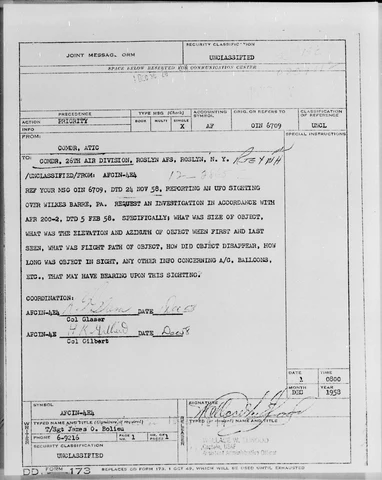 JOINT MESSAGE FORM
SECURITY CLASSIFICATION
UNCLASSIFIED
SPACE BELOW RESERVED FOR COMMUNICATION CENTER
PRECEDENCE
TYPE MSG (Check)
ACCOUNTING SYMBOL
ORIG. OR REFERS TO
CLASSIFICATION OF REFERENCE
ACTION PRIORITY
BOOK MULTI SINGLE
X
AF
OIN 6709
UNCL
INFO
SPECIAL INSTRUCTIONS
FROM:
COMDR, ATIC
TO: COMDR, 26TH AIR DIVISION, ROSLYN AFS, ROSLYN, N. Y.
/UNCLASSIFIED/FROM: AFCIN-4E4
REF YOUR MSG OIN 6709, DTD 24 NOV 58, REPORTING AN UFO SIGHTING
OVER WILKES BARRE, PA. REQUEST AN INVESTIGATION IN ACCORDANCE WITH
AFR 200-2, DTD 5 FEB 58. SPECIFICALLY: WHAT WAS SIZE OF OBJECT,
WHAT WAS THE ELEVATION AND AZIMUTH OF OBJECT WHEN FIRST AND LAST
SEEN, WHAT WAS FLIGHT PATH OF OBJECT, HOW DID OBJECT DISAPPEAR, HOW
LONG WAS OBJECT IN SIGHT, ANY OTHER INFO CONCERNING A/C, BALLOONS,
ETC., THAT MAY HAVE BEARING UPON THIS SIGHTING.
COORDINATION:
AFCIN-4E4 DATE
Col Glaser
AFCIN-4E DATE Dec 58
Col Gilbert
DATE TIME
1 0800
MONTH YEAR
DEC 1958
SYMBOL
AFCIN-4E4
SIGNATURE
TYPED NAME AND TITLE (Signature, if required)
T/Sgt James O. Bolieu
PHONE 6-9216
PAGE NR. 1
NR. OF PAGES 1
SECURITY CLASSIFICATION
UNCLASSIFIED
TYPED NAME AND TITLE
DD FORM 173 REPLACES DD FORM 173, 1 OCT 49, WHICH WILL BE USED UNTIL EXHAUSTED